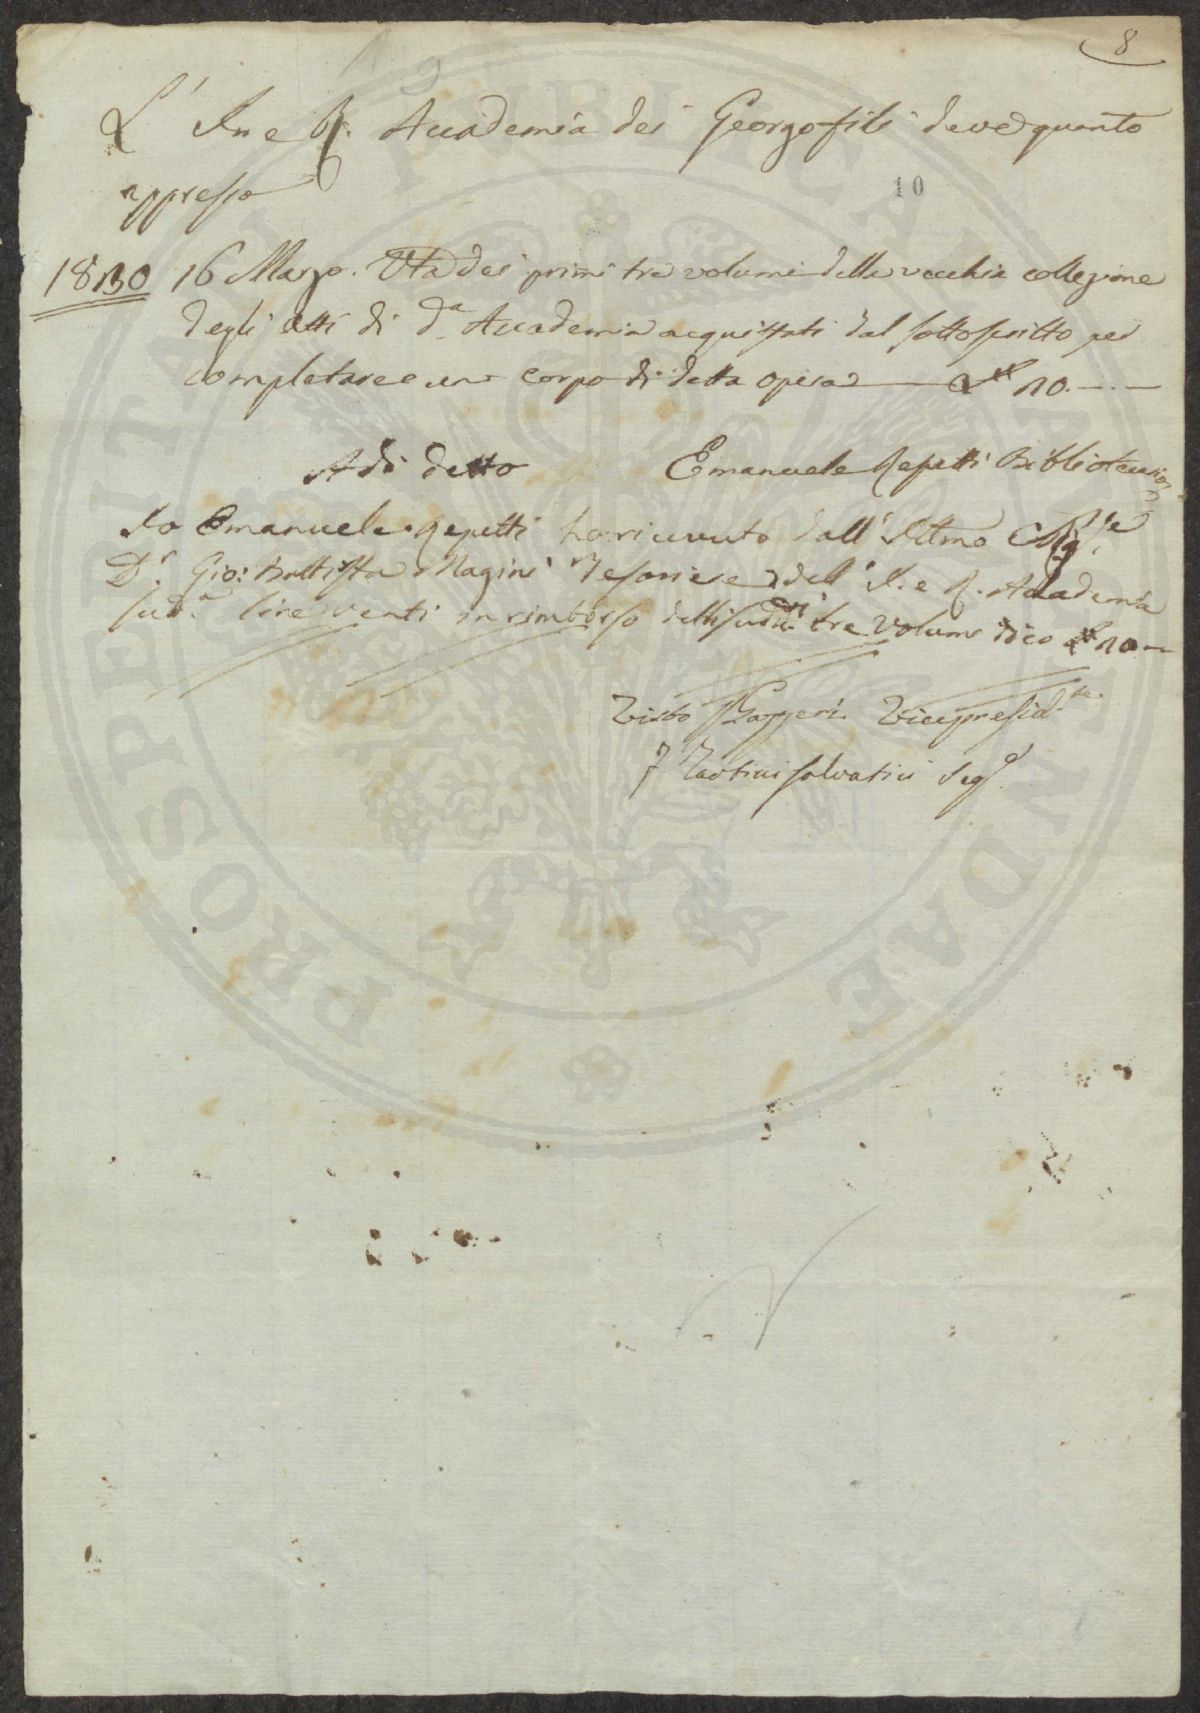 8
L' I. e R. Accademia dei Georgofili deve quanto
appresso
10
1830 16 Marzo. Vta dei primi tre volumi della vecchia collezione
degli Atti di d.a Accademia acquistati dal sottoscritto per
completare un corpo di detta opera — 20. —
Adì detto Emanuele Repetti Bibliotecario
Io Emanuele Repetti ho ricevuto dall' Illmo Sig.re
D.r Gio: Battista Magini Tesoriere dell' I. e R. Accademia
sud.a lire venti in rimborso delli sudd.ti tre volumi dico 20 —
Visto Gazzeri Vicepresid.te
F Tartini Salvatici Seg.o
PROSPERITATI PUBLICAE AUGENDAE